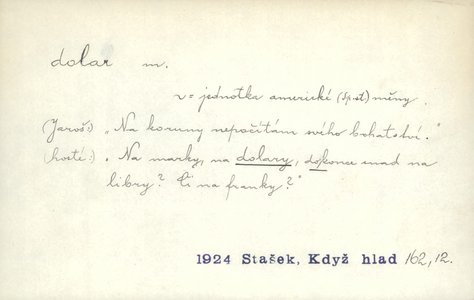 dolar m.
~ = jednotka americké (Sp. st.) měny.
(Jaroš:) „Na koruny nepočítám svého bohatství."
(hosté:) „Na marky, na dolary, dokonce snad na
libry? Či na franky?"
1924 Stašek, Když hlad 162, 12.